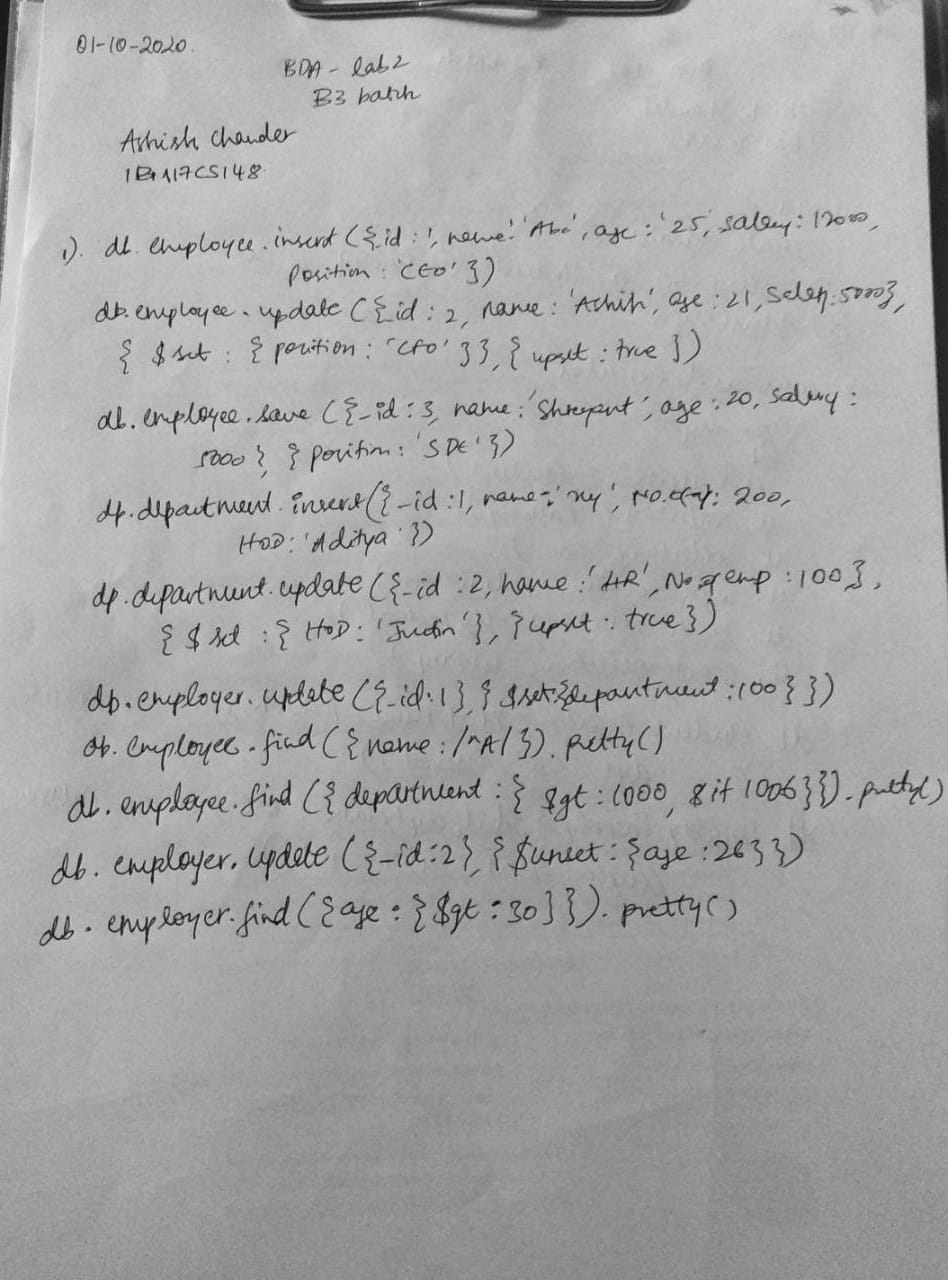 01-10-2020
BDA - lab2
B3 batch
Ashish Chander
1). db. employee. insert ({ id : 1, name: 'Abc', age : '25, salary : 12000,
position : 'CEO' })
db. employee. update ({ id : 2, name : 'Ashish', age : 21, salary: 5000},
{ $ set : { position : 'CFO' }}, { upset : true })
db. employee. save ({ _id : 3, name : 'Shreyant', age : 20, salary :
5000 }, { position : 'SDE' })
db. department. insert({ _id : 1, name = 'xy', 200,
HOD: 'Aditya' })
db. department. update ({ _id : 2, name : 'HR', No of emp : 100 },
{ $ set : { HOD : 'Justin' }, { upset : true })
db. employer. update ({ _id: 1 }, { $set:{department : 100 } })
db. employee. find ({ name : /^A/ }). pretty ()
db. employee. find ({ department : { $gt : 1000, $ lt 1006 }}). pretty()
db. employer. update ({ _id:2}, { $unset : {age : 26 }})
db. employer. find ({ age : { $gt : 30 }}). pretty ()